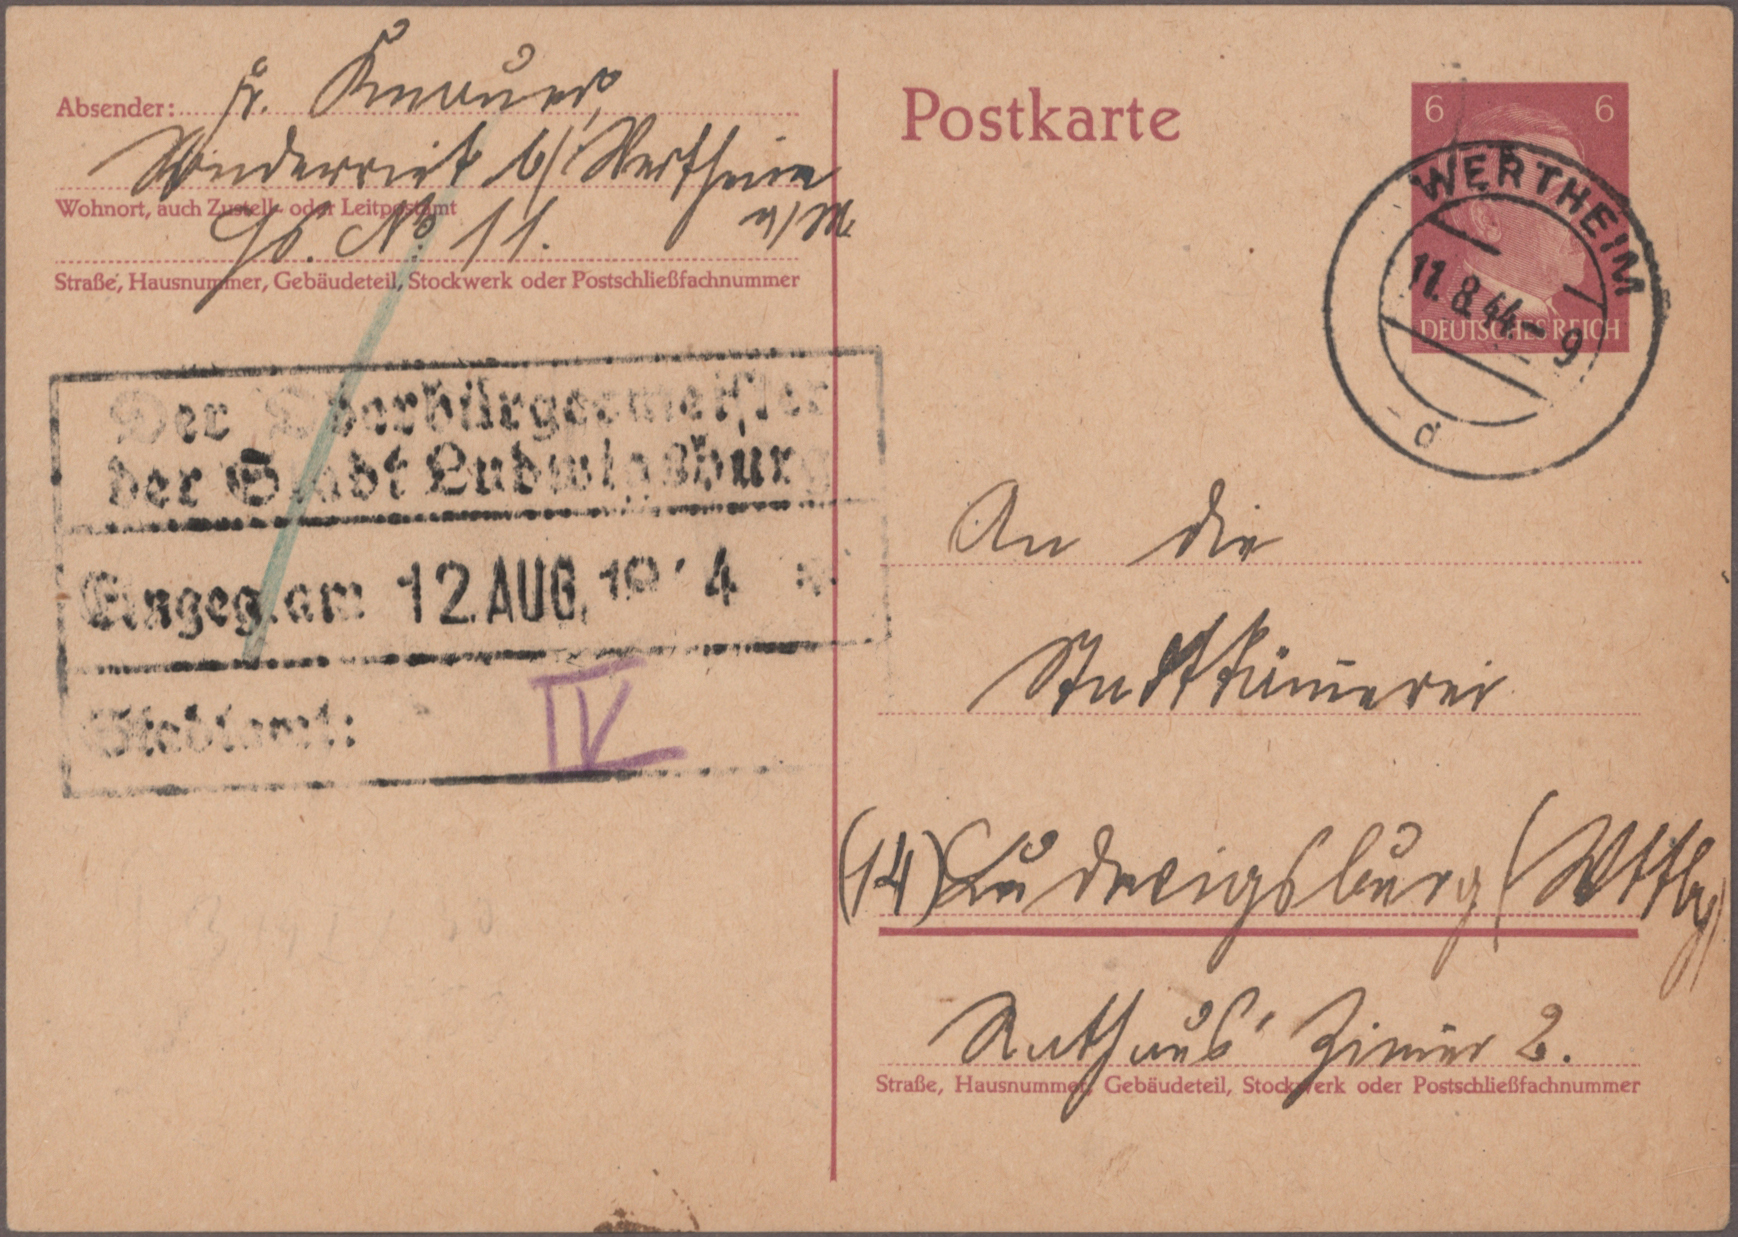 Absender: Fr. Knauer,
Sonderriet b/ Wertheim
a/M.
Wohnort, auch Zustell- oder Leitpostamt
Hs. No 11.
Straße, Hausnummer, Gebäudeteil, Stockwerk oder Postschließfachnummer
Der Oberbürgermeister
der Stadt Ludwigsburg
Eingeg. am 12. AUG. 19 4
Stadtamt: IV
Postkarte
6 6
DEUTSCHES REICH
WERTHEIM
11.8.44 - 9
d
An die
Stadtkämmerei
(14) Ludwigsburg (Wttbg)
Rathaus Zimmer 2.
Straße, Hausnummer, Gebäudeteil, Stockwerk oder Postschließfachnummer